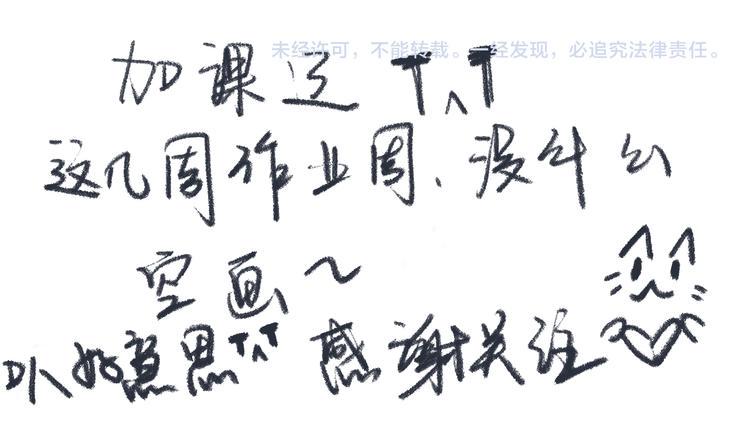 未经许可，不能转载。一经发现，必追究法律责任。
加课这 T^T
这几周作业周、没什么
空画～
以好意思T^T 感谢关注